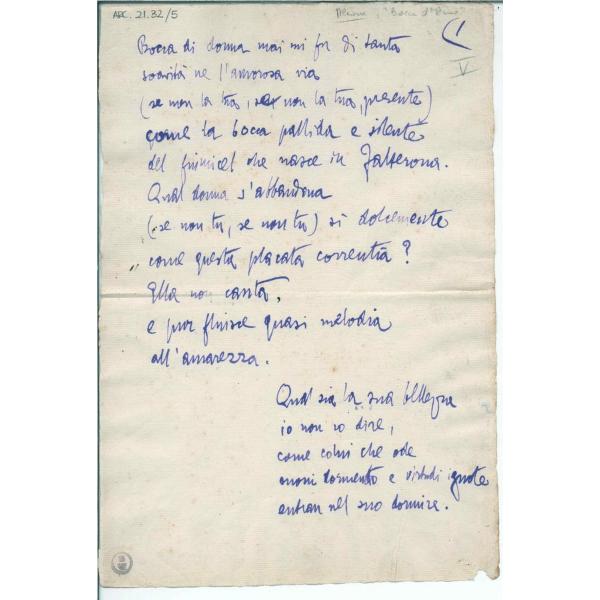 ARC. 21.32/5
Alcione, "Bocca d'Arno"
1
V
Bocca di donna mai mi fu di tanta
soavità ne l'amorosa via
(se non la tua, se non la tua, presente)
come la bocca pallida e silente
del fiumicel che nasce in Falterona.
Qual donna s'abbandona
(se non tu, se non tu) sì dolcemente
come questa placata correntìa?
Ella non canta,
e pur fluisce quasi melodìa
all'amarezza.
Qual sia la sua bellezza
io non so dire,
come colui che ode
suoni dormendo e virtudi ignote
entran nel suo dormire.